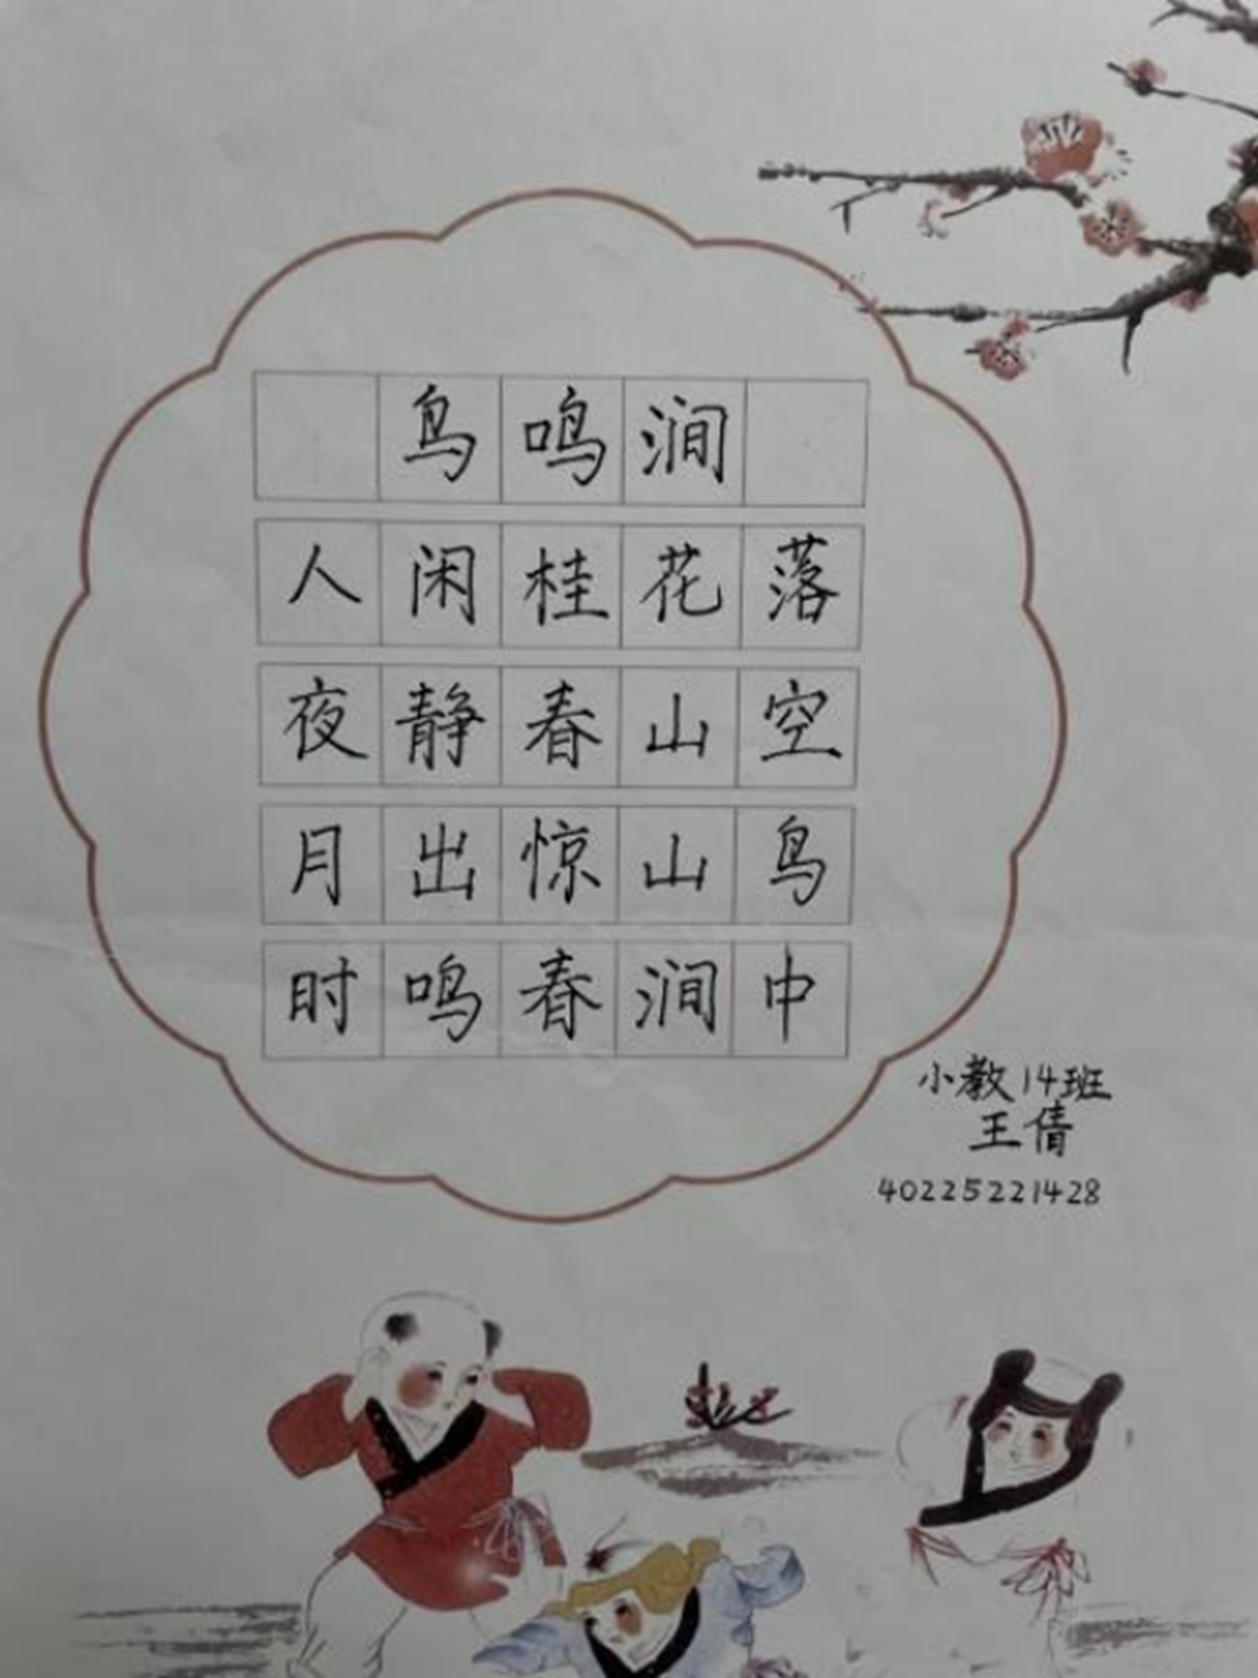 鸟鸣涧
人闲桂花落
夜静春山空
月出惊山鸟
时鸣春涧中
小教14班
王倩
40225221428